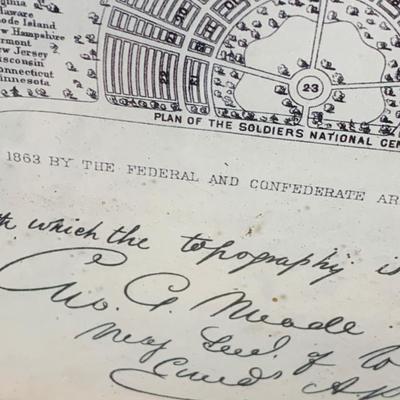 rginia
elaware
ode Island
ew Hampshire
ermont
ew Jersey
isconsin
onnecticut
innesota
23
PLAN OF THE SOLDIERS NATIONAL CE
1863 BY THE FEDERAL AND CONFEDERATE AR
which the topography i
Geo. G. Meade
Maj Genl. of
Comdg A.P